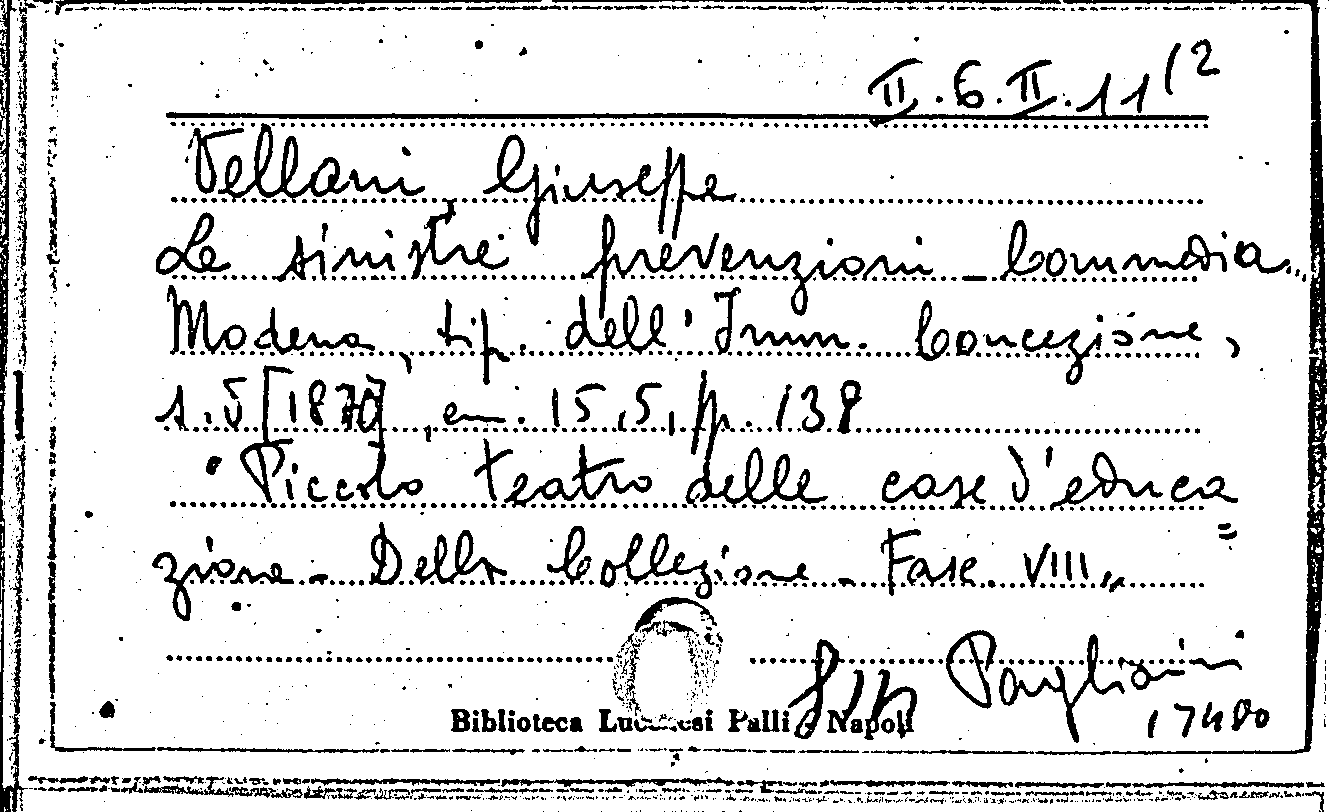 II.6.II.11(2
Vellani, Giuseppe
Le sinistre prevenzioni - Commedia.,,
Modena, tip. dell'Imm. Concezione,
s.d [1870], cm. 15,5, pp. 138
"Piccolo teatro delle case d'educa=
zione - Della Collezione - Fasc. VIII,,
Pagliaini
17480
Biblioteca Lucchesi Palli - Napoli